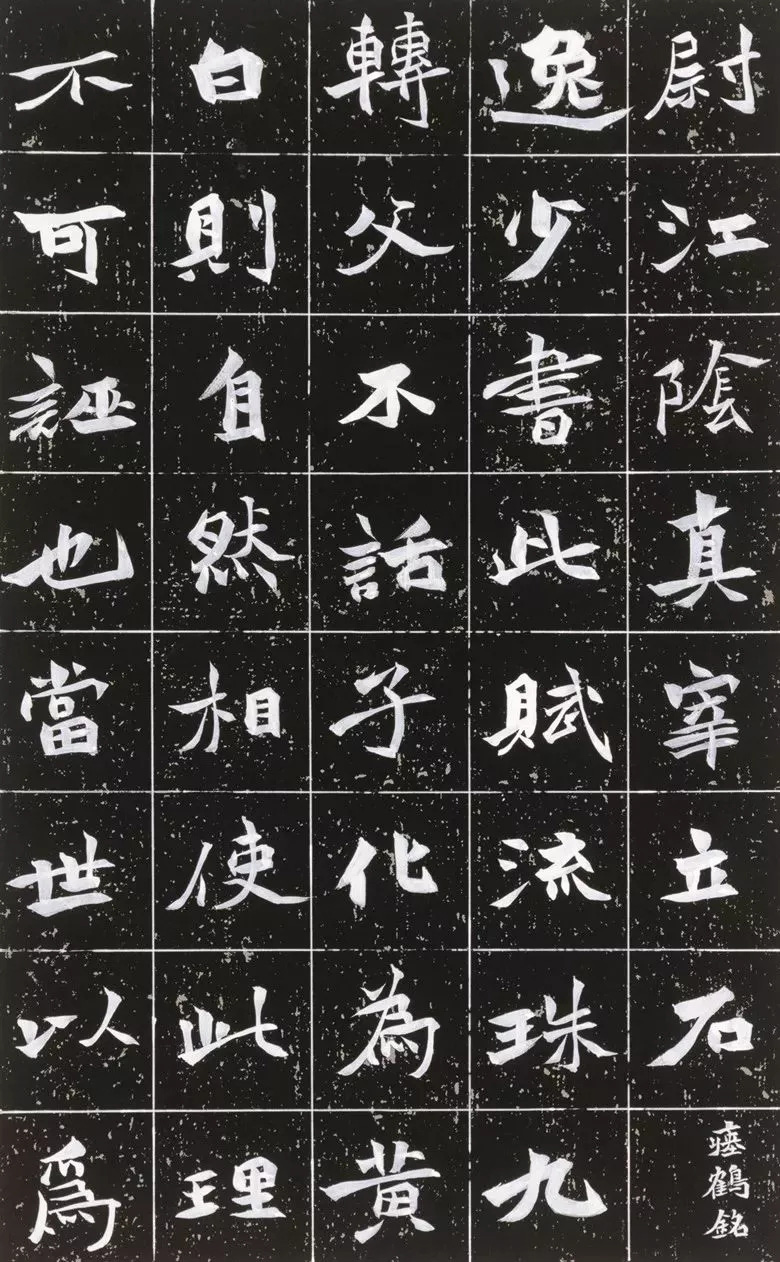 尉江陰真宰立石
瘞鶴銘
逸少書此賦流珠九
轉父不話子化為黄
白則自然相使此理
不可誣也當世以爲